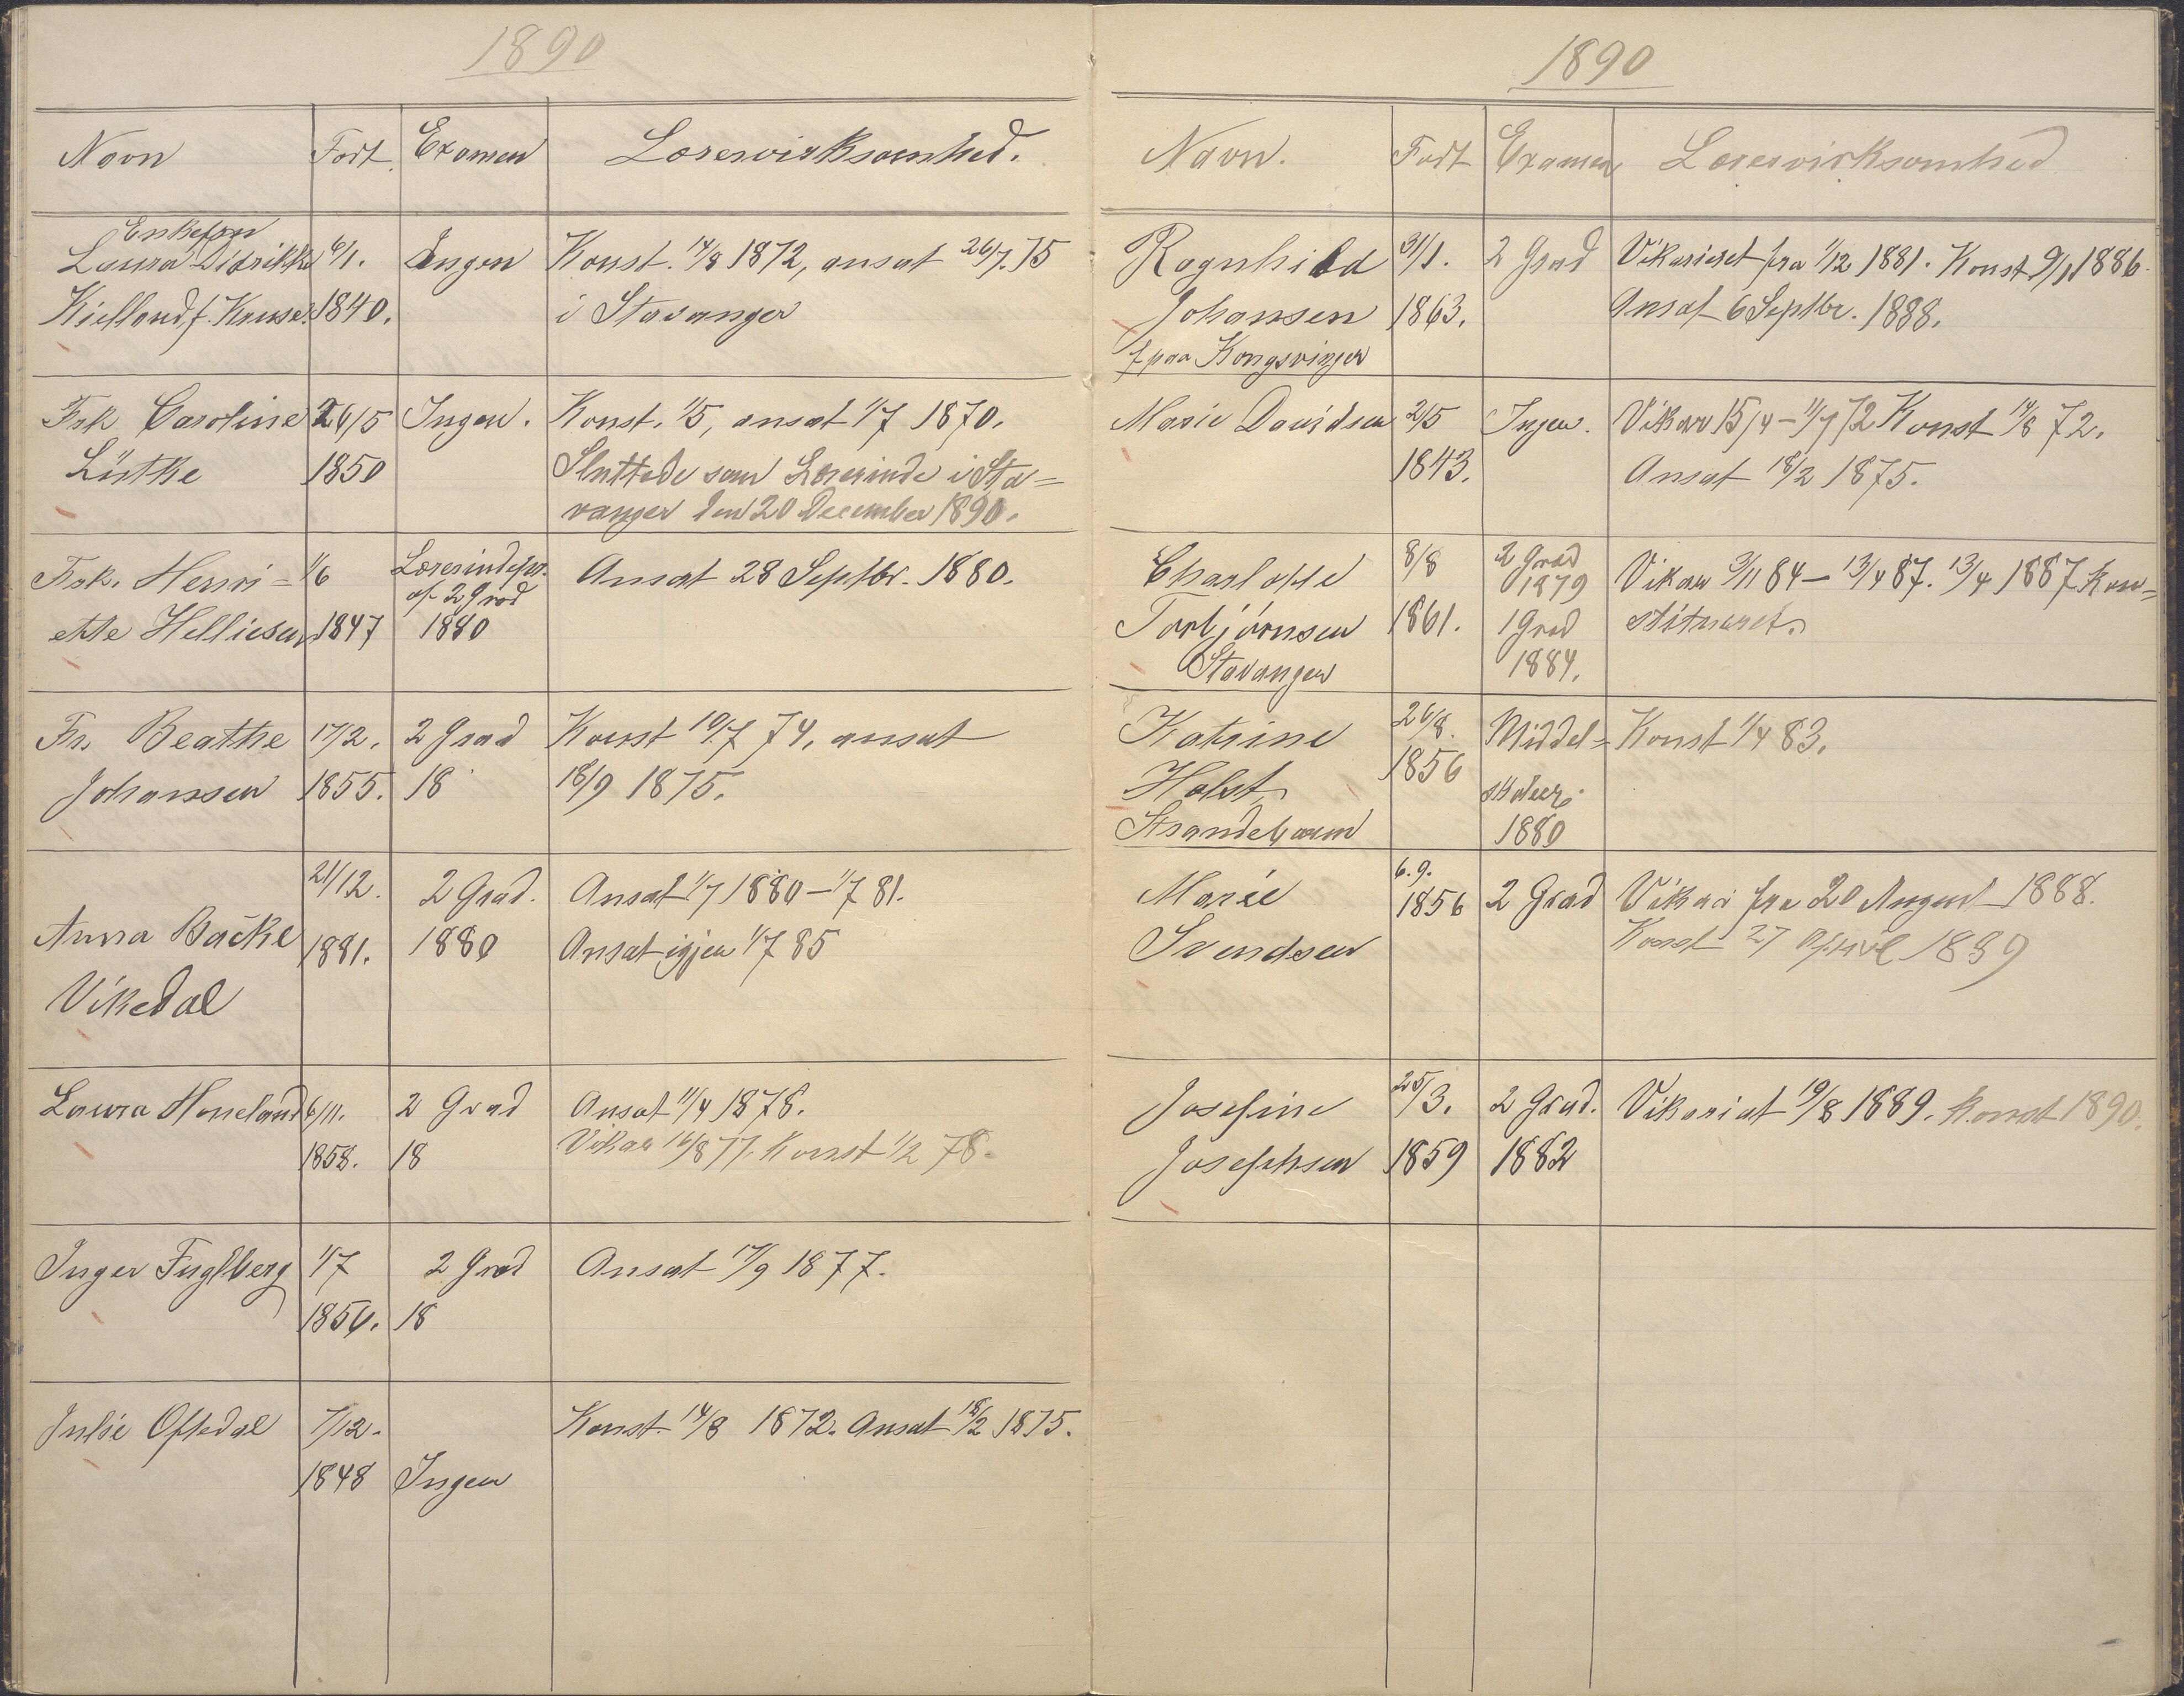 1890
Navn Født Examen Lærervirksomhed.
Enkefru
Laura Didrikke 6/1. Ingen Konst. 14/8 1872, ansat 26/7. 75
Kielland f. Kruse. 1840. i Stavanger
Frk Caroline 26/5 Ingen. Konst. 1/5, ansat 1/7 1870.
Lütke 1850 Sluttede som Lærerinde i Sta=
vanger den 20 December 1890.
Frk. Henri= 1/6 Lærerindepr. Ansat 28 Septbr. 1880.
af 2 Grad
ette Helliesen 1847 1880
Fr. Beathe 17/2. 2 Grad Konst 10/7 74, ansat
Johanssen 1855. 18 18/9 1875.
21/12. 2 Grad. Ansat 1/7 1880 — 1/7 81.
Anna Backe 1881. 1880 Ansat igjen 1/7 85
Vikedal
Laura Honeland 6/11. 2 Grad Ansat 11/4 1878.
1858. 18 Vikar 16/8 77. Konst 1/2 78.
Inger Fuglberg 1/7 2 Grad Ansat 17/9 1877.
1856. 18
Julie Oftedal 7/12. Konst. 14/8 1872. Ansat 18/2 1875.
1848 Ingen
1890
Navn. Født Examen Lærervirksomhed
Ragnhild 31/1. 2 Grad Vikarieret fra 1/12 1881. Konst 9/11 1886.
Johansen 1863. Ansat 6 Septbr. 1888.
f. paa Kongsvinger
Marie Davidsen 2/5 Ingen. Vikar 15/4 — 11/7 72 Konst 14/8 72.
1843. Ansat 18/2 1875.
Charlotte 8/8 2 Grad Vikar 3/11 84 — 13/4 87. 13/4 1887 Kon=
1879
Torbjörnsen 1861. 1 Grad stitueret.
Stavanger 1884.
Katrine 26/8. Middel= Konst 1/4 83.
Holst 1856 skoleex.
Strandebarm 1880
Marie 6.9. 2 Grad Vikar fra 20 August 1888.
Svendsen 1856 Konst 27 April 1889
Josefine 25/3. 2 Grad. Vikariat 19/8 1889. Konst 1890.
Josephsen 1859 1882